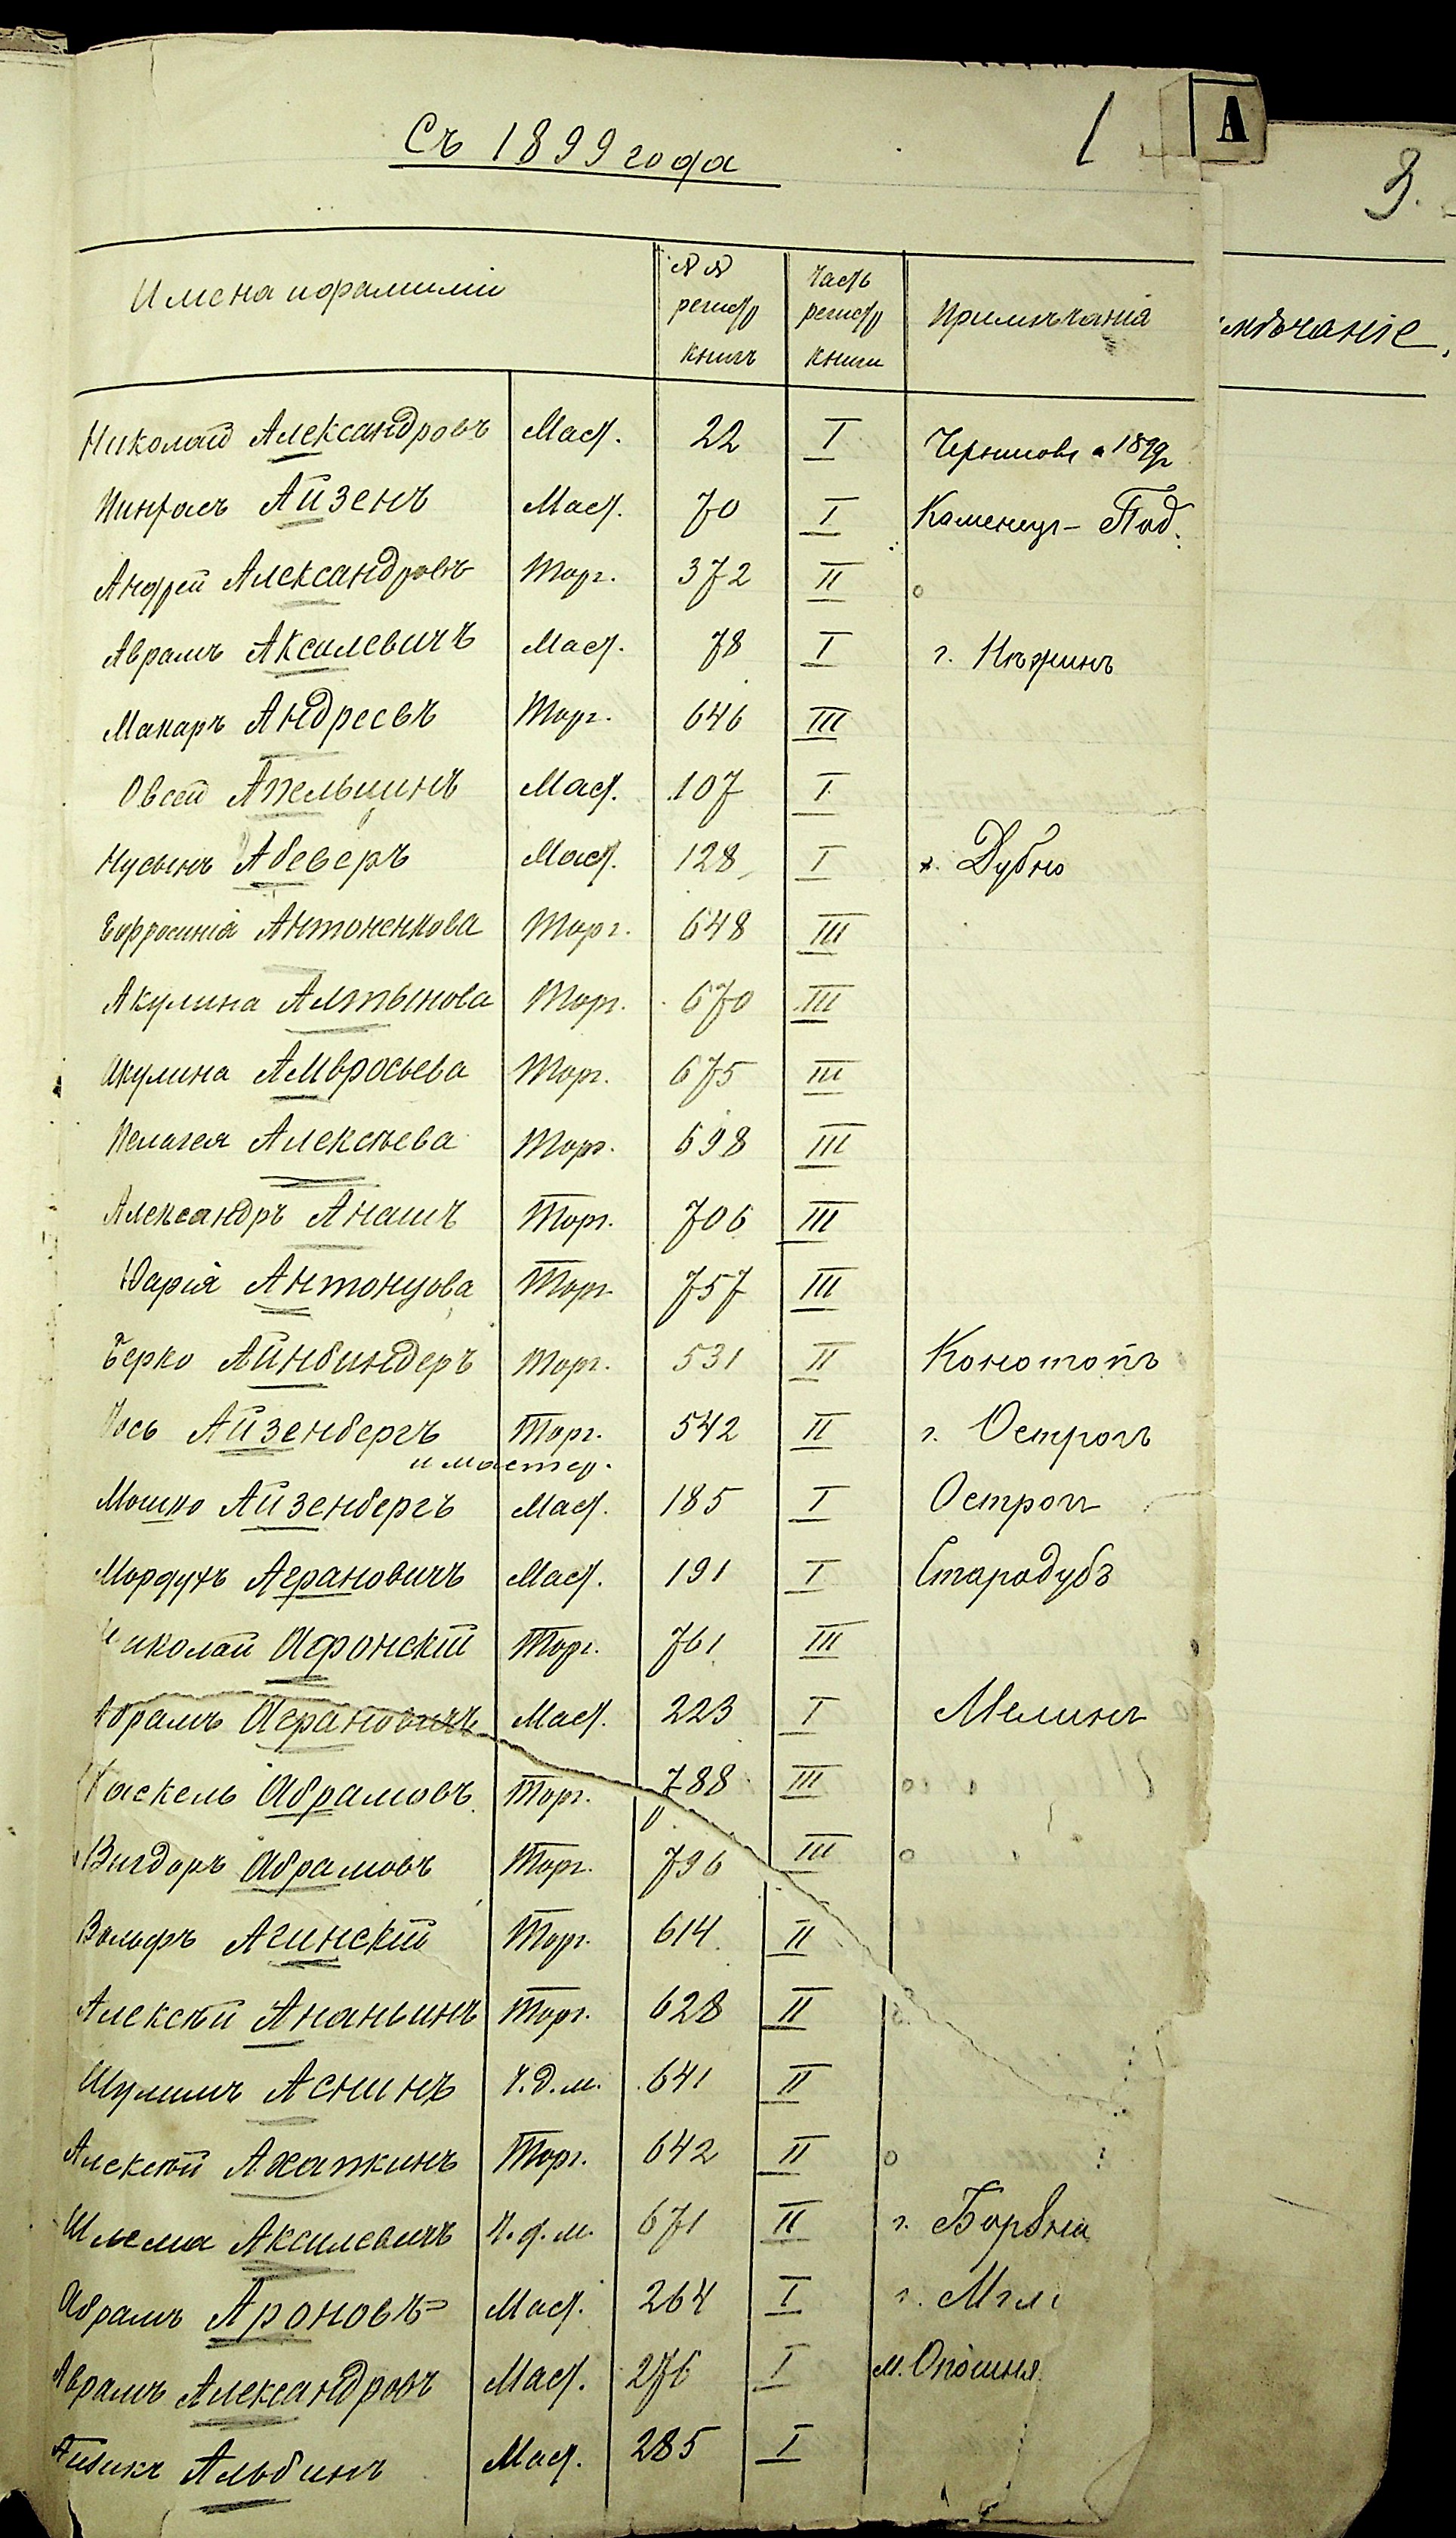 Съ 1899 года
1
А
3.
Имена и фамиліи
№№ регистр книгъ
Часть регистр книги
Примѣчанія
мѣчаніе.
Николай Александровъ Маст. 22 I Черниговъ 1899
Айзенъ Маст. 70 I Каменецъ-Под.
Андрей Александровъ Торг. 372 II
Аврамъ Аксилевичъ Маст. 78 I г. Нѣжинъ
Макаръ Андреевъ Торг. 646 III
Овсей Апельцинъ Маст. 107 I
Нусынъ Абеверъ Маст. 128 I г. Дубно
Ефросинія Антоненкова Торг. 648 III
Акулина Алтынова Торг. 670 III
Акулина Амвросьева Торг. 675 III
Пелагея Алексѣева Торг. 698 III
Александръ Анашъ Торг. 706 III
Марія Антонцова Торг. 757 III
Берко Айнбиндеръ Торг. 531 II Конотопъ
Іось Айзенбергъ Торг. 542 II г. Острогъ
и мастер.
Мошко Айзенбергъ Маст. 185 I Острогъ
Мордухъ Аграновичъ Маст. 191 I Стародубъ
Николай Афонскій Торг. 761 III
Абрамъ Аграновичъ Маст. 223 I Мглинъ
Хаскель Абрамовъ Торг. 788 III
Вигдоръ Абрамовъ Торг. 796 III
Вольфъ Агинскій Торг. 614 II
Алексѣй Ананьинъ Торг. 628 II
Шулимъ Аснинъ Ч.д.м. 641 II
Алексѣй Ахаткинъ Торг. 642 II
Шлема Аксилевичъ Ч.д.м. 671 II г. Борзна
Абрамъ Ароновъ Маст. 264 I г. Мгли
Аврамъ Александровъ Маст. 276 I м. Опошня
Айзикъ Альбинъ Маст. 285 I